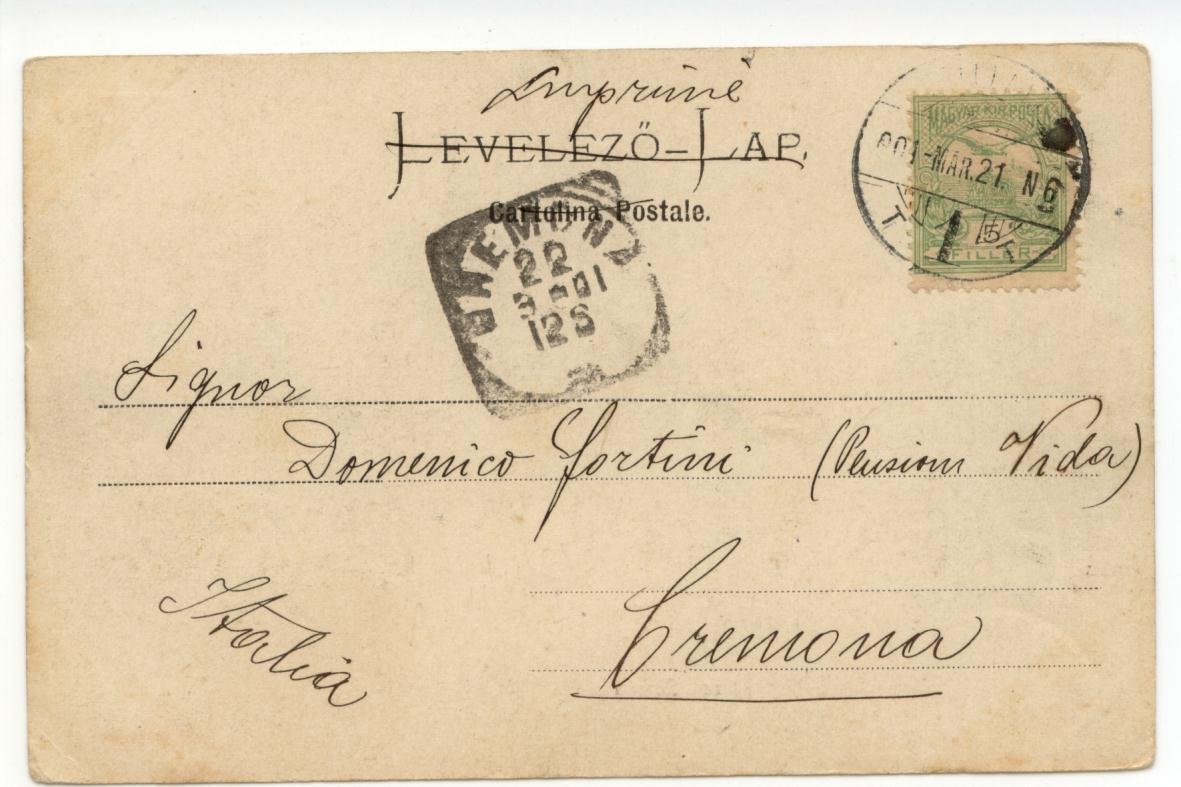 Imprimé
LEVELEZŐ-LAP.
Cartolina Postale.
MAGYAR KIR. POSTA
901-MAR.21. N6
5
FILLER
22
3-01
12S
Signor
Domenico Fortini (Pension Vida)
Cremona
Italia